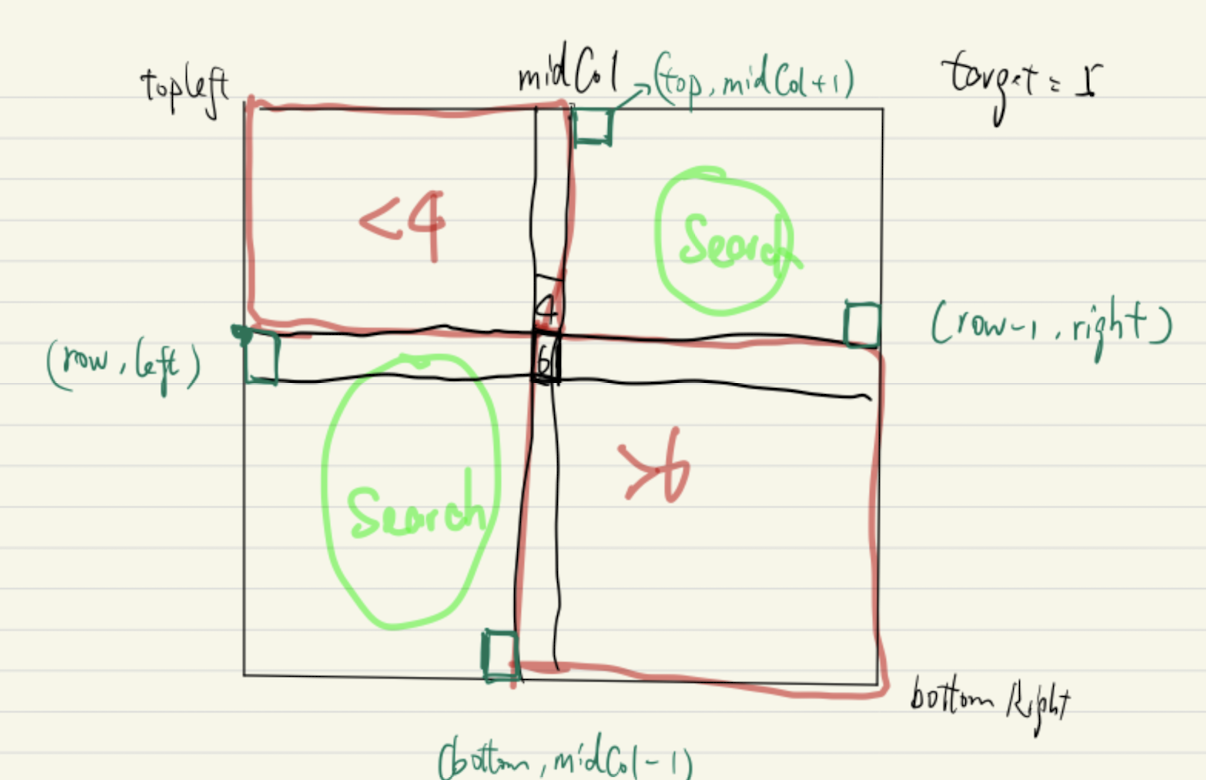 topleft
midCol
(top, midCol+1)
target = 5
<4
Search
4
(row-1, right)
(row, left)
6
>6
Search
bottom Right
(bottom, midCol-1)